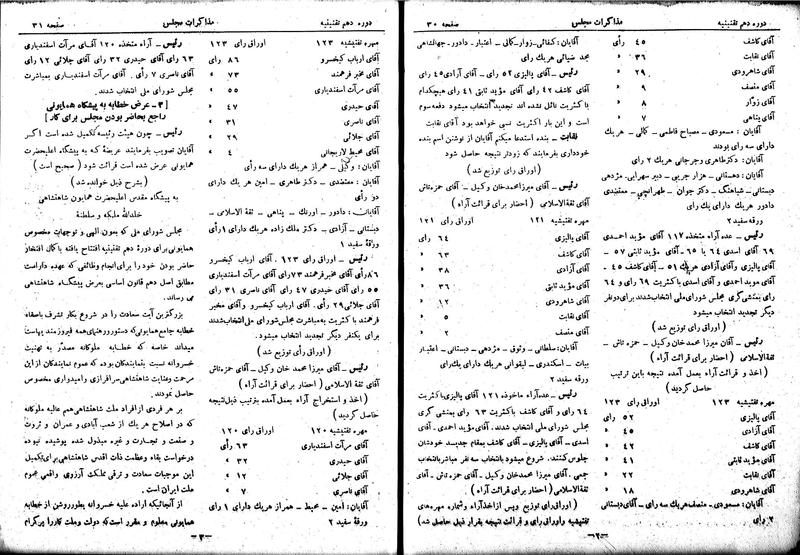 دوره دهم تقنینیه
مذاکرات مجلس
صفحه ۳۰
آقای کاشف ۴۵ رأی
آقای نقابت ۳۶ »
آقای شاهرودی ۲۹ »
آقای منصف ۹ »
آقای زوار ۸ »
آقای پناهی ۷ »
آقایان : مسعودی - مصباح فاطمی - کالی - هریك
دارای سه رای بودند
آقایان : دکتر طاهری و جرجانی هريك ۲ رای
آقایان : دهستانی - هزار جریبی - دبیر سهرابی - مژدهی
دبستانی - شباهنگ - دکتر جوان - طهرانچی - معتضدی
دادور هريك دارای يك رای
ورقه سفید ۲
رئیس - عده آراء متخذه ۱۱۷ آقای مؤید احمدی
۶۹ آقای اسدی ۶۴ با ۶۵ - آقای مؤید ثابتی ۵۷ -
آقای پالیزی و آقای آزادی هريك ۵۱ - آقای کاشف ۴۵ -
آقای موید احمدی و آقای اسدی با کثریت ۶۹ رای و ۶۴
رای بمنشی گری مجلس شورای ملی انتخاب شدند برای دو نفر
دیگر تجدید انتخاب میشود
(اوراق رای توزیع شد)
رئیس - آقایان میرزا محمد خان وکیل - آقای حمزه تاش
ثقة الاسلامی (احضار برای قرائت آراء)
( اخذ و قرائت آراء بعمل آمده نتیجه باین ترتیب
حاصل گردید)
مهره تفتیشیه ۱۲۳ اوراق رای ۱۲۳
آقای پالیزی ۵۲ رای
آقای آزادی ۴۵ »
آقای کاشف ۴۲ »
آقای مؤید ثابتی ۴۱ »
آقای نقابت ۲۲ »
آقای شاهرودی ۱۸ »
آقایان : مسعودی - منصف هريك سه رای - آقای دبستانی
۲ رای
آقایان : کفائی - زوار - کالی - اعتبار - دادور - جهانشاهی
مجد ضیائی هريك رای
رئیس - آقای پالیزی ۵۲ رای - آقای آزادی ۴۵ رای
آقای کاشف ۴۲ رای آقای مؤید ثابتی ۴۱ رای هیچکدام
با کثریت نائل نشده اند تجدید انتخاب میشود دفعه سوم
است و این بار اکثریت نسبی خواهد بود آقای نقابت
نقابت - بنده استدعا میکنم آقایان از نوشتن اسم بنده
خودداری بفرمایند که زودتر نتیجه حاصل شود
(اوراق رای توزیع شد)
رئیس - آقایان میرزا محمد خان وکیل - آقای حمزه تاش
آقای ثقة الاسلامی (احضار برای قرائت آراء)
مهره تفتیشیه ۱۲۱ اوراق رای ۱۲۱
آقای پالیزی ۶۴ رای
آقای کاشف ۶۳ »
آقای آزادی ۳۸ »
آقای مؤید ثابتی ۳۶ »
آقای شاهرودی ۱۲ »
آقای نقابت ۵ »
آقای منصف ۲ »
آقایان : سلطانی - وثوق - مژدهی - دبستانی - اعتبار
بیات - اسکندری - لیقوانی هريك دارای يك رای
ورقه سفید ۲
رئیس - عده آراء ماخوذه ۱۲۱ آقای پالیزی با کثریت
۶۴ رای و آقای کاشف با کثریت ۶۳ رای بمنشی گری
مجلس شورای ملی انتخاب شدند . آقای مؤید احمدی - آقای
اسدی - آقای پالیزی - آقای کاشف بمقام جدید خودشان
جلوس کنند . شروع میشود بانتخاب سه نفر مباشر با انتخاب
جمعی - آقای میرزا محمد خان وکیل - آقای حمزه تاش - آقای
ثقة الاسلامی (احضار برای قرائت آراء)
(اوراق رای توزیع و پس از اخذ آراء و شماره مهره های
تفتیشیه و اوراق رای و قرائت نتیجه بقرار ذیل حاصل شد)
-۲-
دوره دهم تقنینیه
مذاکرات مجلس
صفحه ۳۱
مهره تفتیشیه ۱۲۳ اوراق رای ۱۲۳
آقای ارباب کیخسرو ۸۶ رای
آقای مخبر فرهمند ۷۳ »
آقای مرآت اسفندیاری ۵۵ »
آقای حیدری ۴۷ »
آقای ناصری ۳۱ »
آقای جلائی ۲۹ »
آقای محیط لاریجانی ۴ »
آقایان : وکیل - همراز هريك دارای سه رأی
آقایان : معتضدی - دکتر طاهری - امین هريك دارای
دو رأی
آقایان : دادور - اورنك - پناهی - ثقة الاسلامی -
دبستانی - آزادی - دکتر ملك زاده هريك دارای ۱ رای
ورقۀ سفید ۱
رئیس - اوراق رای ۱۲۳ . آقای ارباب کیخسرو
۸۶ رای آقای مخبر فرهمند ۷۳ رای آقای مرآت اسفندیاری
۵۵ رای آقای حیدری ۴۷ رای آقای ناصری ۳۱ رای
آقای جلائی ۲۹ رای . آقای ارباب کیخسرو و آقای مخبر
فرهمند با کثریت به مباشرت مجلس شورای ملی انتخاب شدند
برای یکنفر دیگر تجدید انتخاب میشود .
(اوراق رأی توزیع شد)
رئیس - آقایان میرزا محمد خان وکیل - آقای حمزه تاش
آقای ثقة الاسلامی (احضار برای قرائت آراء)
(اخذ و استخراج آراء بعمل آمده بترتیب ذیل نتیجه
حاصل گردید)
مهره تفتیشیه ۱۲۰ اوراق رای ۱۲۰
آقای مرآت اسفندیاری ۶۳ رأی
آقای حیدری ۳۲ »
آقای جلائی ۱۲ »
آقای ناصری ۷ »
آقایان : امین - محیط - همراز هريك دارای ۱ رای
ورقه سفید ۲
رئیس - آراء متخذه ۱۲۰ آقای مرآت اسفندیاری
۶۳ رای آقای حیدری ۳۲ رای آقای جلائی ۱۲ رای
آقای ناصری ۷ رأی . آقای مرآت اسفندیاری بمباشرت
مجلس شورای ملی انتخاب شدند .
[ ۳ - عرض خطابه به پیشگاه همایونی
راجع بحاضر بودن مجلس برای کار ]
رئیس - چون هیئت رئیسه تکمیل شده است اگر
آقایان تصویب بفرمایند عریضۀ که به پیشگاه اعلیحضرت
همایونی عرض شده است قرائت شود (صحیح است)
(بشرح ذیل خوانده شد)
به پیشگاه مقدس اعلیحضرت همایون شاهنشاهی
خلدالله ملکه و سلطنة
مجلس شورای ملی که بعون الهی و توجهات مخصوص
همایونی برای دورۀ دهم تقنینیه افتتاح یافته با کمال افتخار
حاضر بودن خود را برای انجام وظائفی که عهده دار است
مطابق اصل دهم قانون اساسی بعرض پیشگاه شاهنشاهی
می رساند .
بزرگترین آیت سعادت را در شروع بکار تشرف باصغاء
خطابه جامع همایونی که دستور و رهنمای همه فیروزمند بهاست
میداند خاصه که خطابه ملوکانه مصدر به تهنیت
خسروانه نسبت بنمایندگان بوده که عموم نمایندگان از این
مرحمت و عنایت شاهنشاهی سرافرازی و امیدواری مخصوص
حاصل نمودند .
بر هر فردی از افراد ملت شاهنشاهی همم عالیه ملوکانه
که در اصلاح هريك از شعب آبادی و عمران و ثروت
و صنعت و تجارت و غیره مبذول شده پوشیده نبوده
درخواست بقاء وعظمت ذات اقدس شاهنشاهی برای تکمیل
این موجبات سعادت و ترقی مملکت آرزوی واقعی عموم
ملت ایران است .
از آنجائیکه اراده علیه خسروانه بطور روشن از خطابه
همایونی معلوم و مقرر است که دولت و ملت کار را بر گرام
-۳-